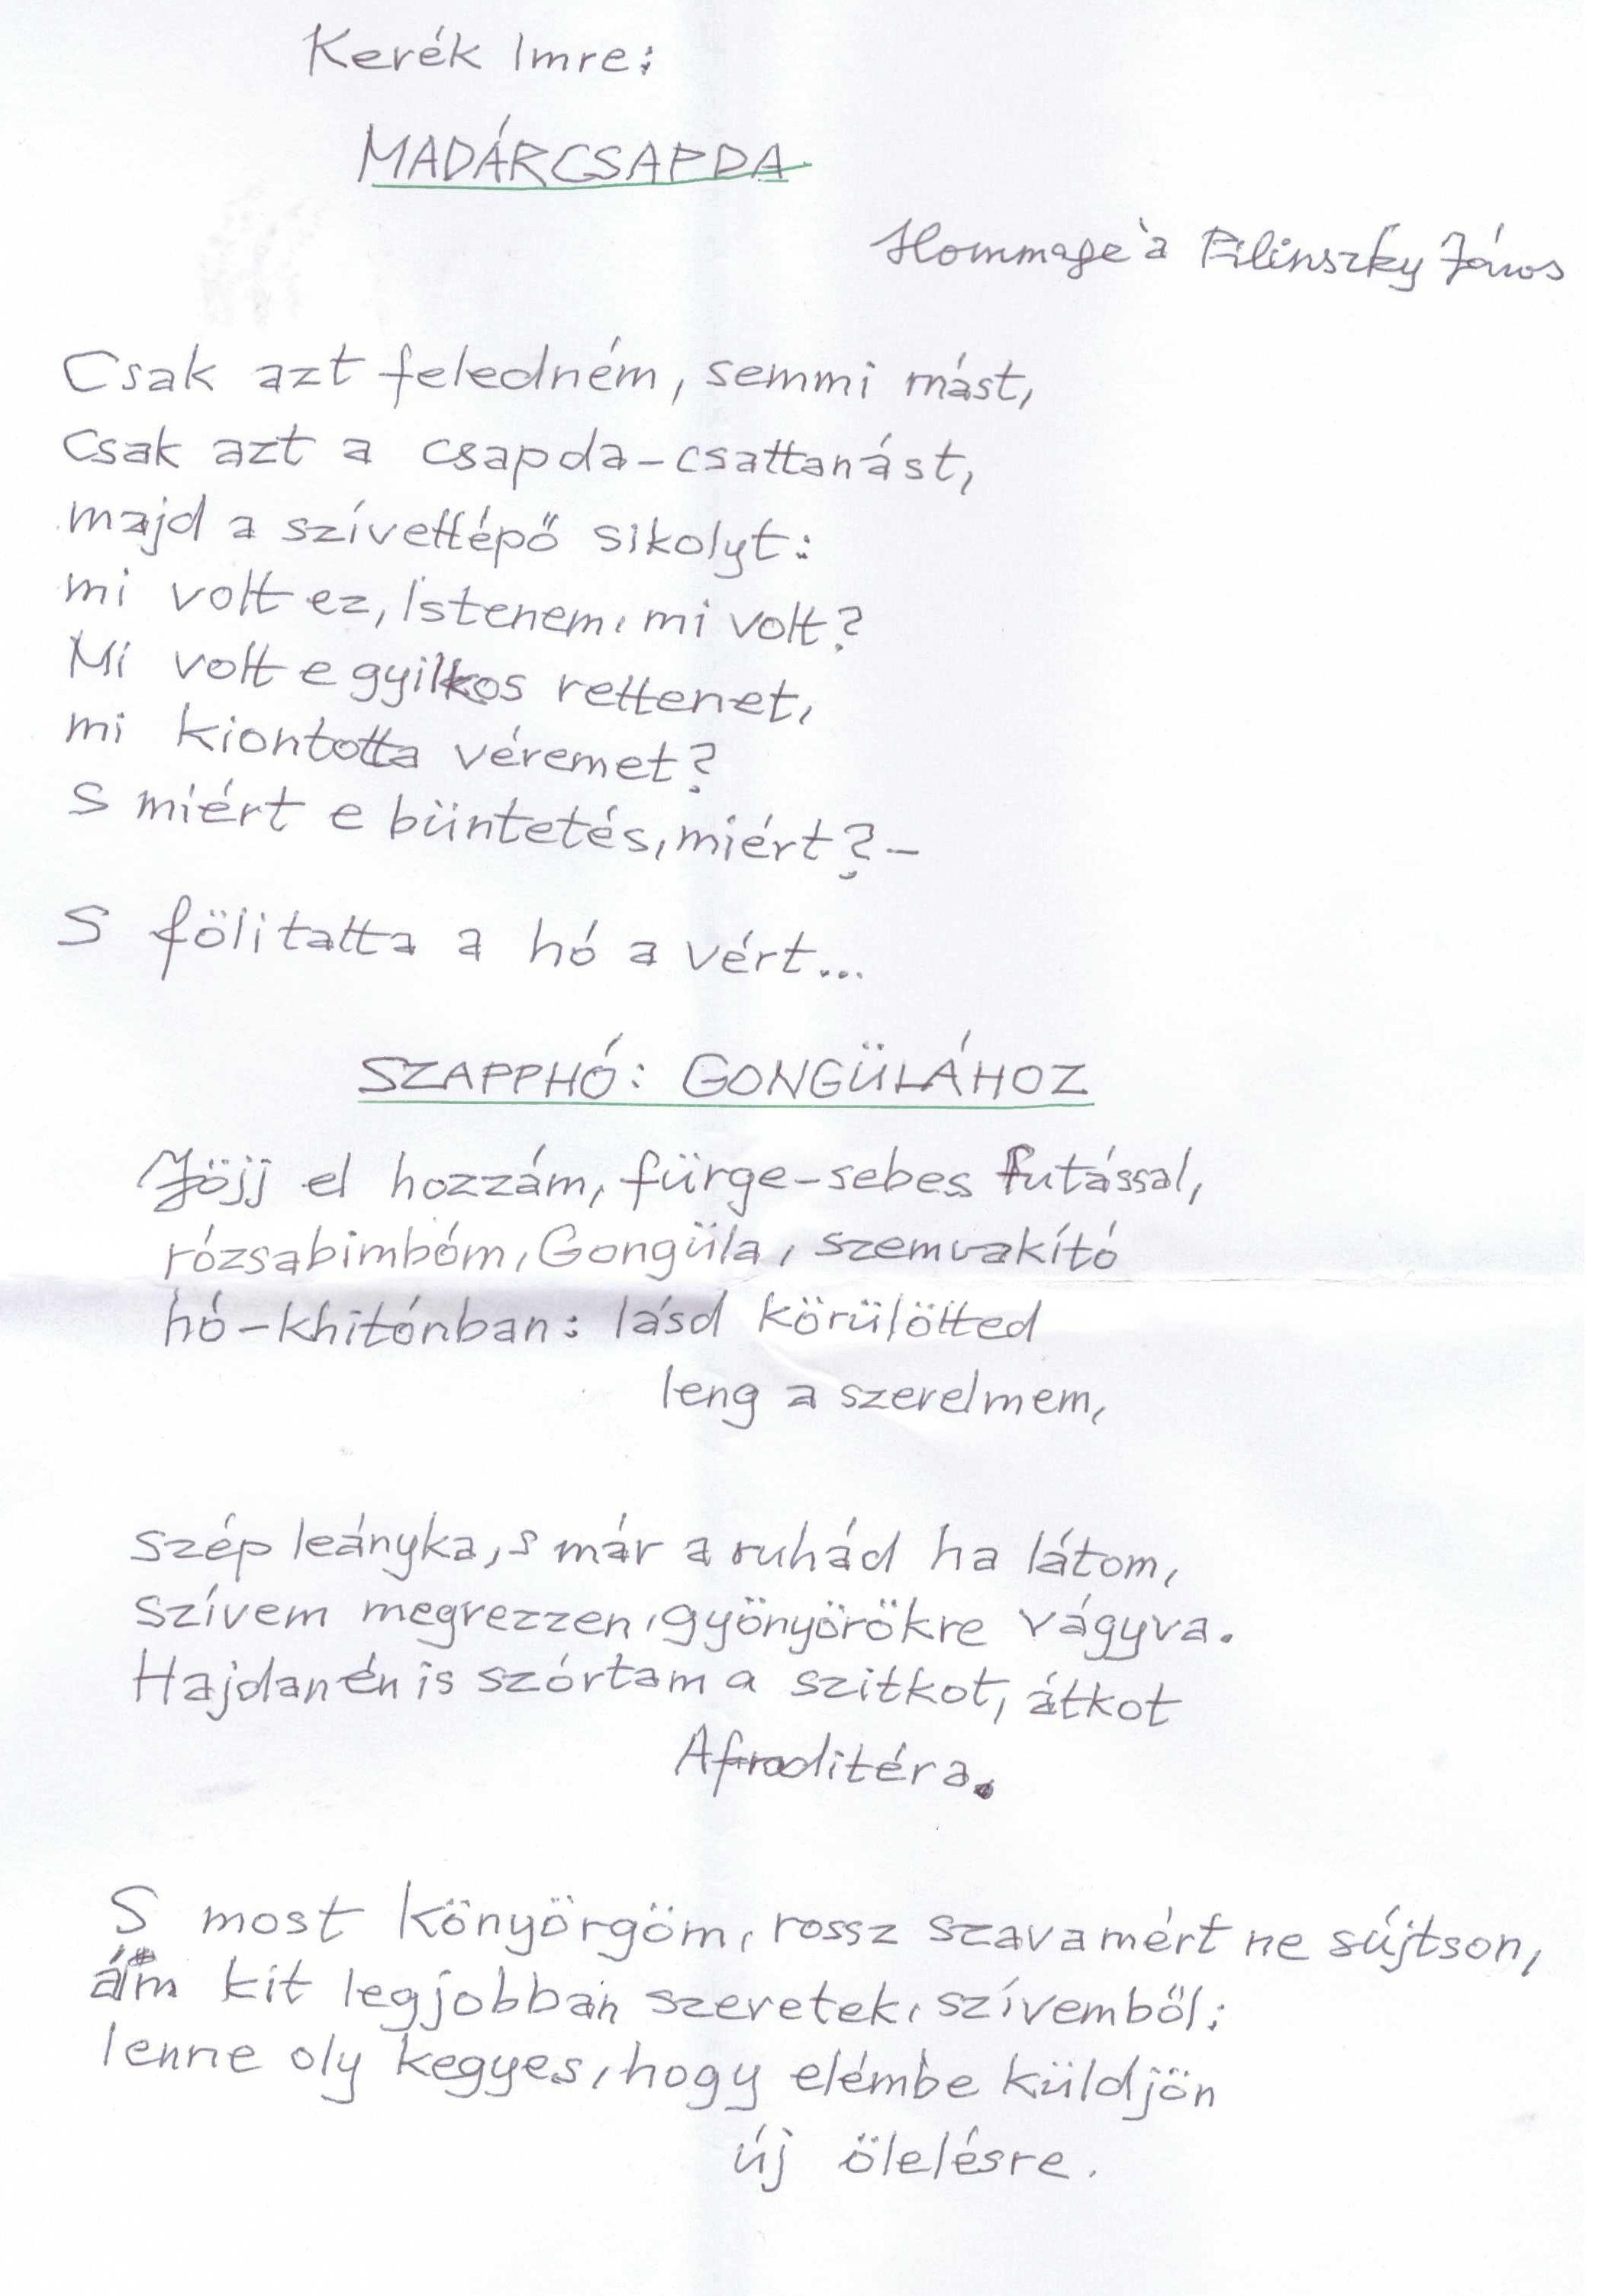 Kerék Imre:
MADÁRCSAPDA
Hommage à Pilinszky János
Csak azt feledném, semmi mást,
csak azt a csapda-csattanást,
majd a szívettépő sikolyt:
mi volt ez, Istenem, mi volt?
Mi volt e gyilkos rettenet,
mi kiontotta véremet?
S miért e büntetés, miért? –
S fölitatta a hó a vért...
SZAPPHÓ: GONGÜLÁHOZ
Jöjj el hozzám, fürge-sebes futással,
rózsabimbóm, Gongüla, szemvakító
hó-khitónban: lásd körülötted
leng a szerelmem,
szép leányka, s már a ruhád ha látom,
szívem megrezzen, gyönyörökre vágyva.
Hajdan én is szórtam a szitkot, átkot
Afroditéra.
S most könyörgöm, rossz szavamért ne sújtson,
ám kit legjobban szeretek, szívemből;
lenne oly kegyes, hogy elémbe küldjön
új ölelésre.